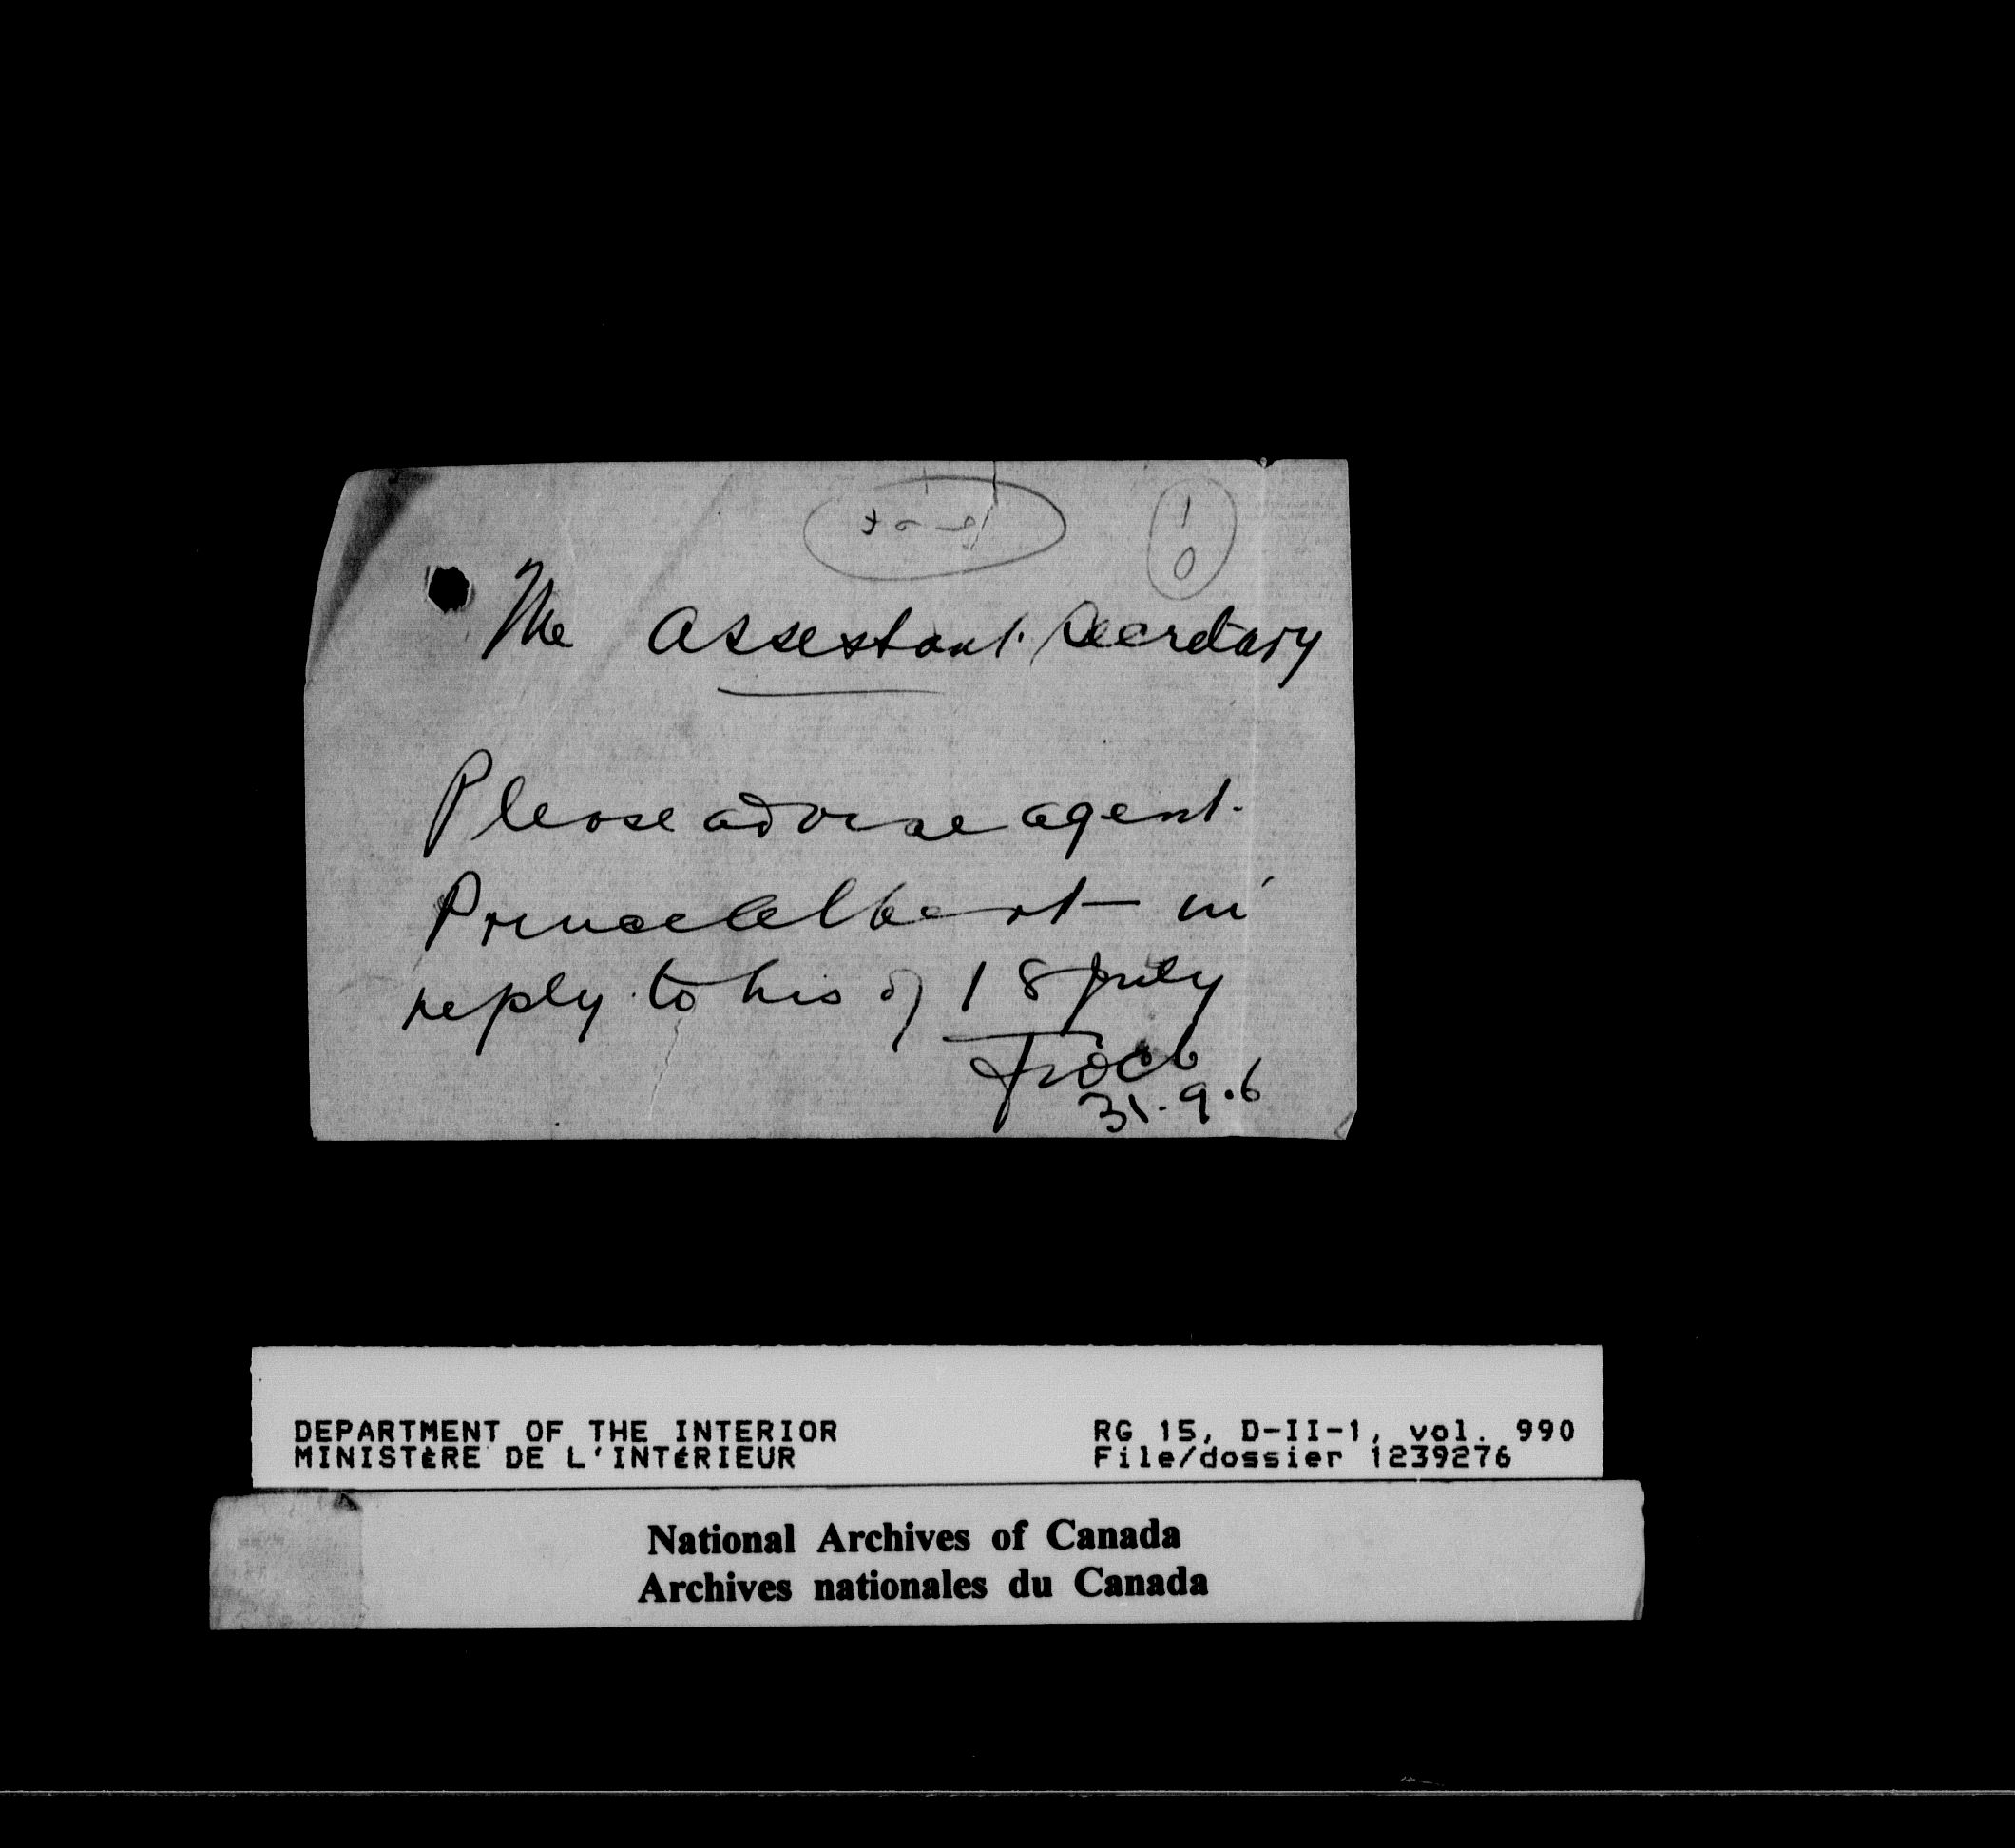 1
0
The Assestant Secretary
Please advise agent
Prince Albert in
reply to his of 18 July
31.9.6
DEPARTMENT OF THE INTERIOR
MINISTÈRE DE L'INTÉRIEUR
RG 15, D-II-1, vol. 990
File/dossier 1239276
National Archives of Canada
Archives nationales du Canada